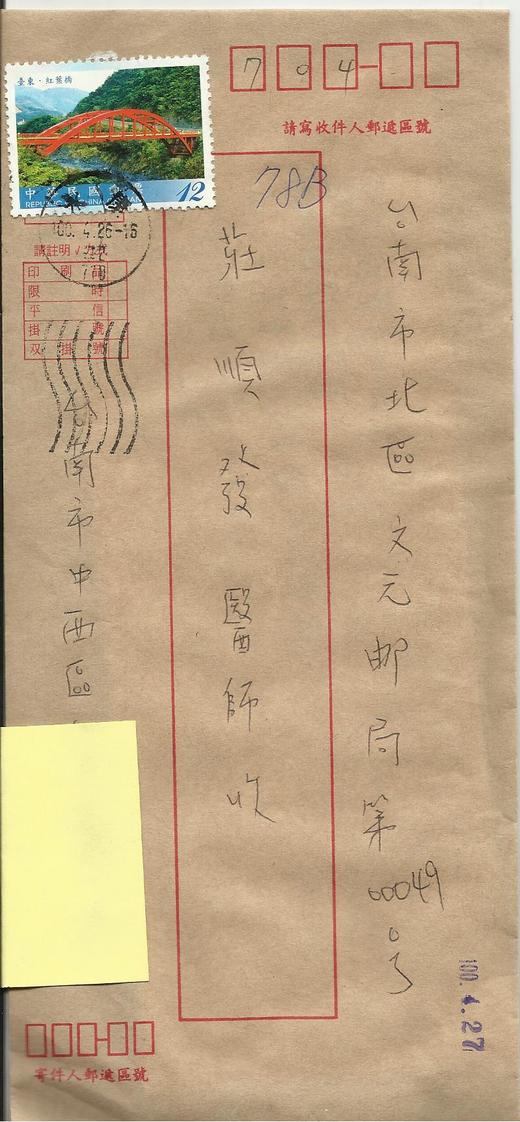 704-
請寫收件人郵遞區號
台南市北區文元邮局第00049号
78B
莊順發醫師收
臺東·紅葉橋
中華民國郵票
REPUBLIC OF CHINA (TAIWAN)
12
100.4.26-16
請註明
印刷品
限時
平信
掛號
双掛號
台南市中西區
寄件人郵遞區號
100.4.27